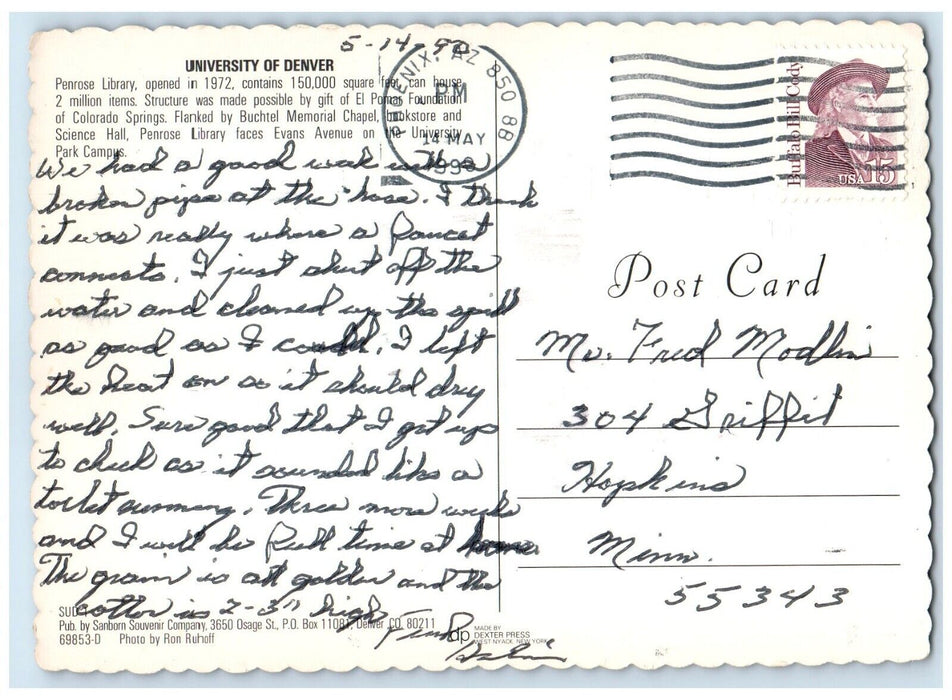 5-14-90
UNIVERSITY OF DENVER
Penrose Library, opened in 1972, contains 150,000 square feet, can house
2 million items. Structure was made possible by gift of El Pomar Foundation
of Colorado Springs. Flanked by Buchtel Memorial Chapel, bookstore and
Science Hall, Penrose Library faces Evans Avenue on the University
Park Campus.
We had a good week with a
broken pipe at the house. I think
it was really where a faucet
connects. I just shut off the
water and cleaned up the spill
as good as I could. I left
the heat on so it should dry
well. Sure good that I got up
to check as it sounded like a
toilet running. Three more weeks
and I will be full time at home.
The grain is all golden and the
cotton is 2-3" high
SUD
Pub. by Sanborn Souvenir Company, 3650 Osage St., P.O. Box 11081, Denver, CO. 80211
69853-D Photo by Ron Ruhoff
dp MADE BY
DEXTER PRESS
WEST NYACK, NEW YORK
PHOENIX, AZ 850 88
PM
14 MAY
1990
Buffalo Bill Cody
USA 15
Post Card
Mr. Fred Modlin
304 Griffit
Hopkins
Minn.
55343